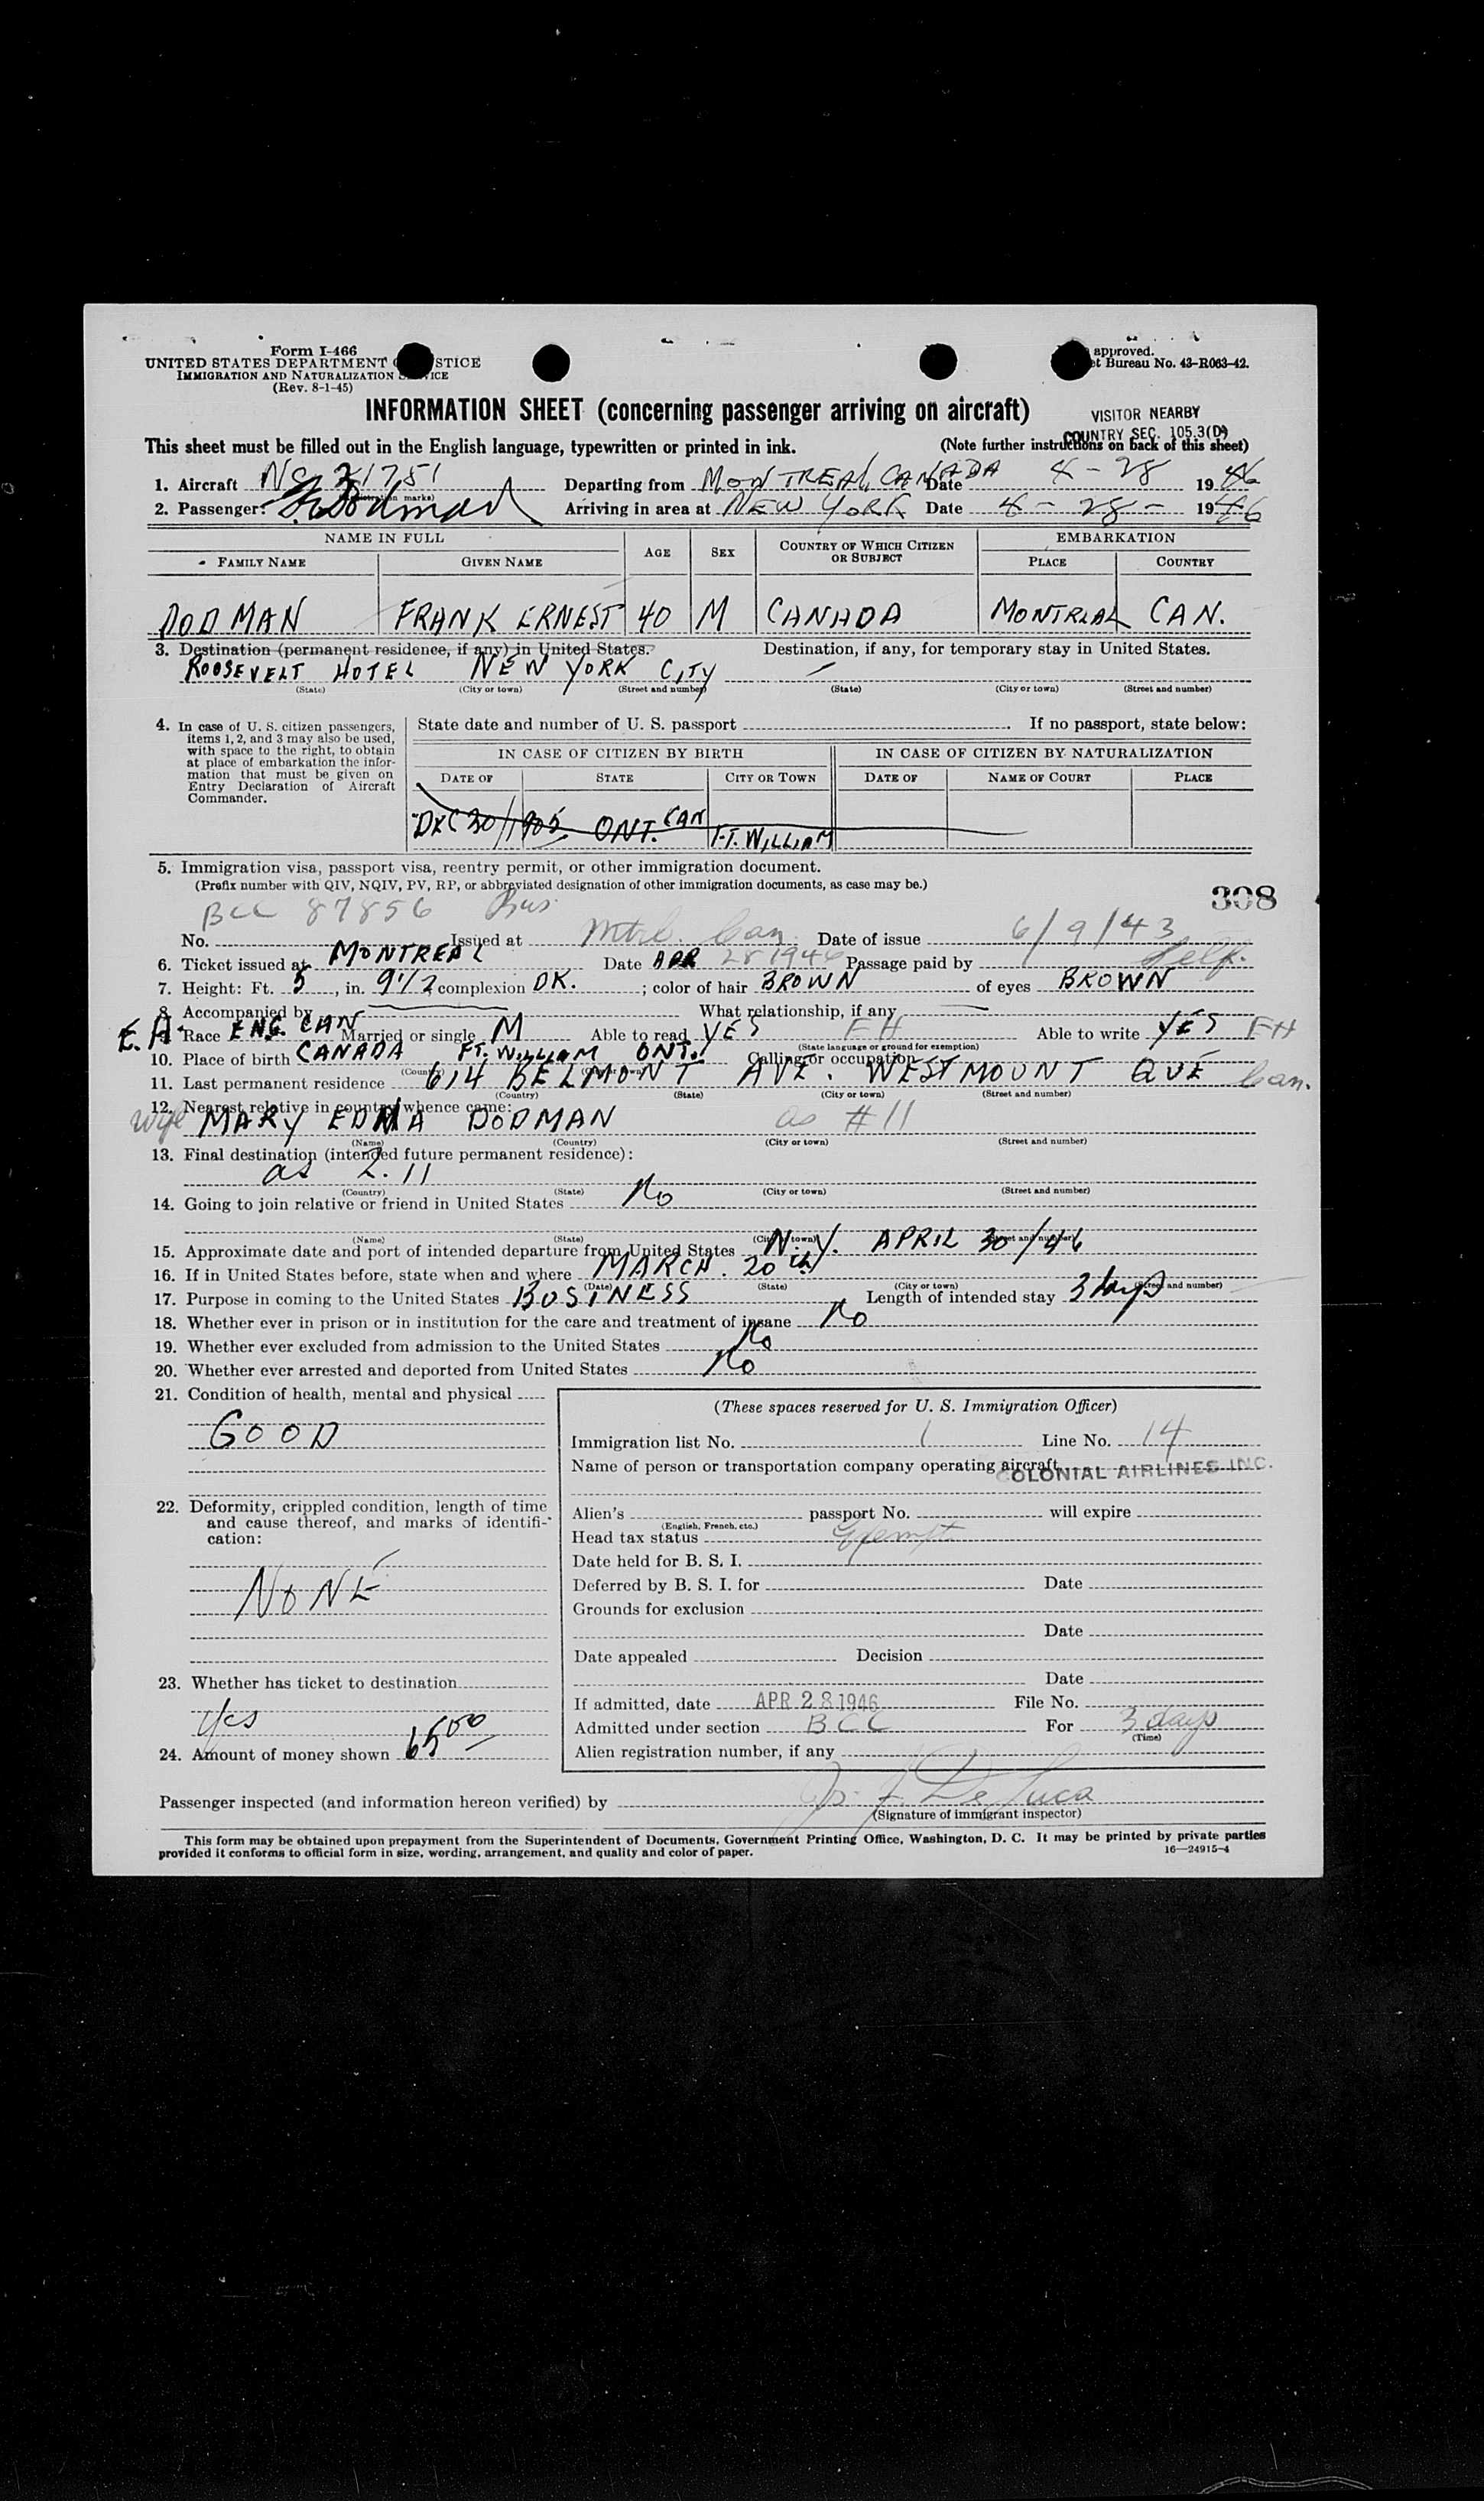 Form I-466
UNITED STATES DEPARTMENT STICE
IMMIGRATION AND NATURALIZATION ICE
(Rev. 8-1-45)
approved.
et Bureau No. 43-R063-42.
INFORMATION SHEET (concerning passenger arriving on aircraft)
VISITOR NEARBY
COUNTRY SEC. 105.3(D)
This sheet must be filled out in the English language, typewritten or printed in ink.
(Note further instructions on back of this sheet)
1. Aircraft NC 21751 Departing from MONTREAL, CANADA Date 4-28 1946
(Registration marks)
2. Passenger: Dodman Arriving in area at NEW YORK Date 4-28- 1946
NAME IN FULL AGE SEX COUNTRY OF WHICH CITIZEN OR SUBJECT EMBARKATION
FAMILY NAME GIVEN NAME PLACE COUNTRY
DODMAN FRANK ERNEST 40 M CANADA MONTREAL CAN.
3. Destination (permanent residence, if any) in United States. Destination, if any, for temporary stay in United States.
ROOSEVELT HOTEL NEW YORK CITY
(State) (City or town) (Street and number) (State) (City or town) (Street and number)
4. In case of U. S. citizen passengers,
items 1, 2, and 3 may also be used,
with space to the right, to obtain
at place of embarkation the infor-
mation that must be given on
Entry Declaration of Aircraft
Commander.
State date and number of U. S. passport. If no passport, state below:
IN CASE OF CITIZEN BY BIRTH IN CASE OF CITIZEN BY NATURALIZATION
DATE OF STATE CITY OR TOWN DATE OF NAME OF COURT PLACE
DEC 30/1905 ONT. CAN FT. WILLIAM
5. Immigration visa, passport visa, reentry permit, or other immigration document.
(Prefix number with QIV, NQIV, PV, RP, or abbreviated designation of other immigration documents, as case may be.)
308
BCC 87856 Bus
No. Issued at Mtrl. Can. Date of issue 6/9/43
6. Ticket issued at MONTREAL Date APR 28 1946 Passage paid by Self.
7. Height: Ft. 5, in. 9 1/2, complexion DK.; color of hair BROWN of eyes BROWN
8. Accompanied by What relationship, if any
E.A. Race ENG. CAN Married or single M Able to read YES EH Able to write YES EH
(State language or ground for exemption)
10. Place of birth CANADA FT. WILLIAM ONT. Calling or occupation
(Country)
11. Last permanent residence 614 BELMONT AVE. WESTMOUNT QUE Can.
(Country) (State) (City or town) (Street and number)
12. Nearest relative in country whence came:
Wife MARY EDNA DODMAN as #11
(Name) (Country) (City or town) (Street and number)
13. Final destination (intended future permanent residence):
as 2. 11
(Country) (State) (City or town) (Street and number)
14. Going to join relative or friend in United States No
(Name) (State) (City or town) (Street and number)
15. Approximate date and port of intended departure from United States N.Y. APRIL 30/46
16. If in United States before, state when and where MARCH. 20th
(Date) (State) (City or town) (Street and number)
17. Purpose in coming to the United States BUSINESS Length of intended stay 3 days
18. Whether ever in prison or in institution for the care and treatment of insane No
19. Whether ever excluded from admission to the United States No
20. Whether ever arrested and deported from United States No
21. Condition of health, mental and physical
GOOD
22. Deformity, crippled condition, length of time
and cause thereof, and marks of identifi-
cation:
NONE
23. Whether has ticket to destination
Yes
24. Amount of money shown 65 00
(These spaces reserved for U. S. Immigration Officer)
Immigration list No. 1 Line No. 14
Name of person or transportation company operating aircraft
COLONIAL AIRLINES INC.
Alien's passport No. will expire
(English, French, etc.)
Head tax status Exempt
Date held for B. S. I.
Deferred by B. S. I. for Date
Grounds for exclusion
Date
Date appealed Decision
Date
If admitted, date APR 28 1946 File No.
Admitted under section BCC For 3 days
(Time)
Alien registration number, if any
Passenger inspected (and information hereon verified) by De Luca
(Signature of immigrant inspector)
This form may be obtained upon prepayment from the Superintendent of Documents, Government Printing Office, Washington, D. C. It may be printed by private parties
provided it conforms to official form in size, wording, arrangement, and quality and color of paper.
16—24915-4